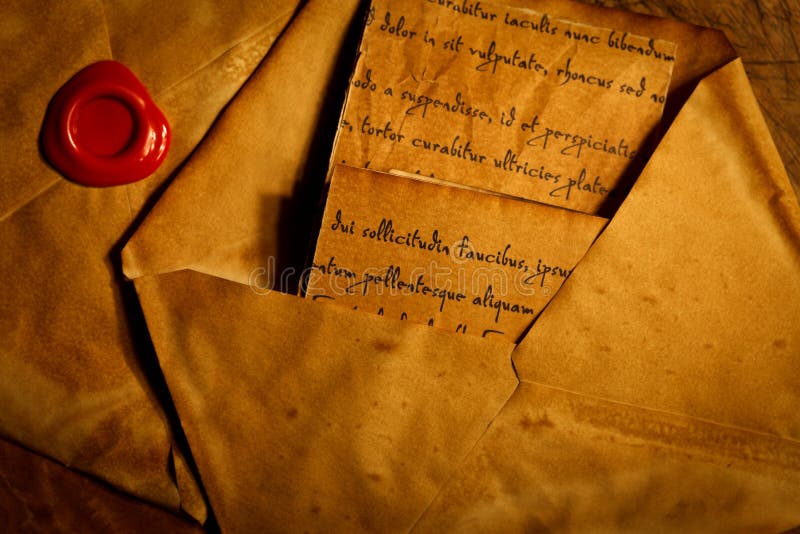 curabitur iaculis nunc bibendum
dolor in sit vulputate, rhoncus sed no
odo a suspendisse, id et perspiciatis
, tortor curabitur ultricies plate
dui sollicitudin faucibus, ipsu
ntum pellentesque aliquam
dreamstime